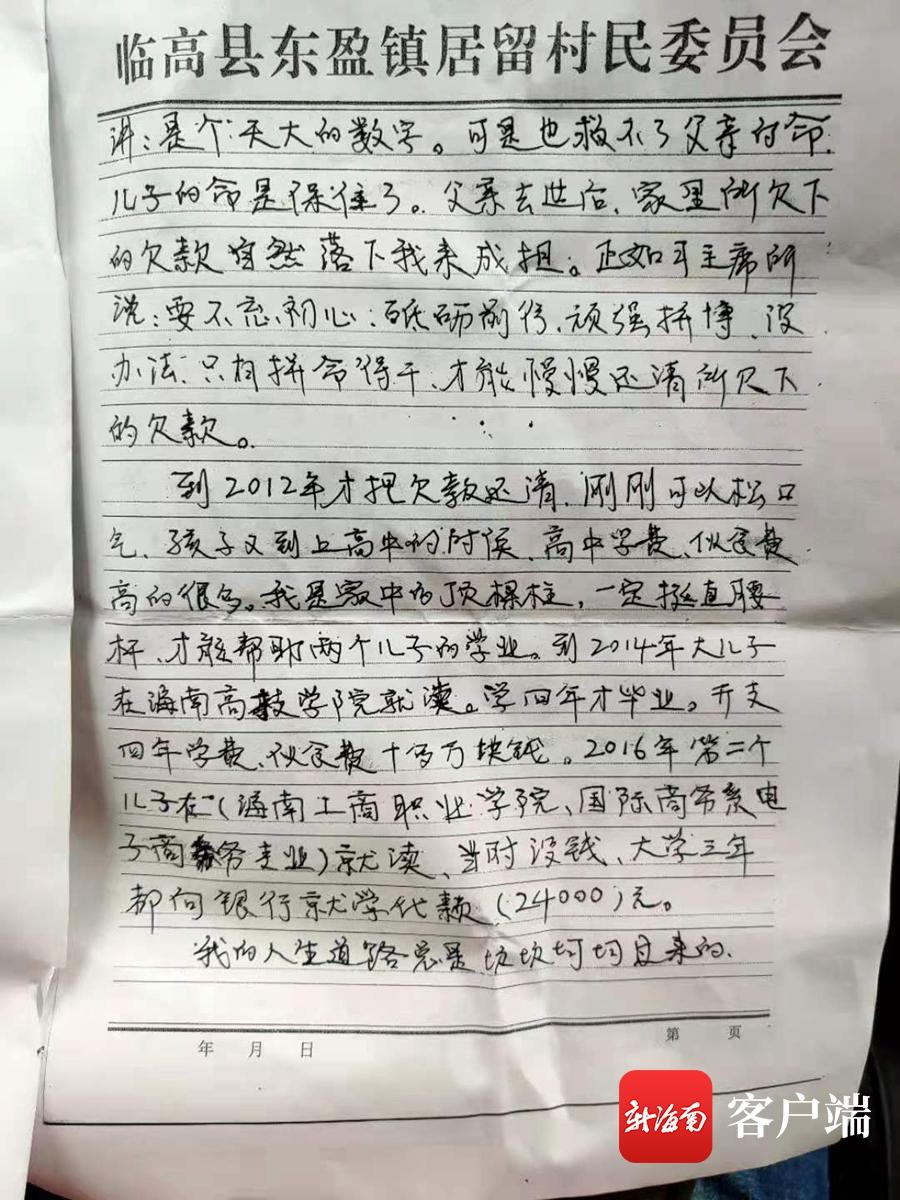 临高县东盈镇居留村民委员会
讲:是个天大的数字。可是也救不了父亲的命.
儿子的命是保住了。父亲去世后、家里所欠下
的欠款自然落下我来成担。正如习主席所
说:要不忘初心:砥砺前行、顽强拼博、没
办法、只有拼命得干、才能慢慢还清所欠下
的欠款。
到2012年才把欠款还清、刚刚可以松口
气、孩子又到上高中的时侯、高中学费、伙食费
高的很多。我是家中的顶樑柱,一定挺直腰
杆、才能帮助两个儿子的学业。到2014年大儿子
在海南高技学院就读。学四年才毕业。开支
四年学费、伙食费十多万块钱。2016年第二个
儿子在(海南工商职业学院、国际商务系电
子商务专业)就读、当时没钱、大学三年
都向银行就学代款(24000)元。
我的人生道路总是坎坎坷坷过来的.
年 月 日
第 页
新海南 客户端